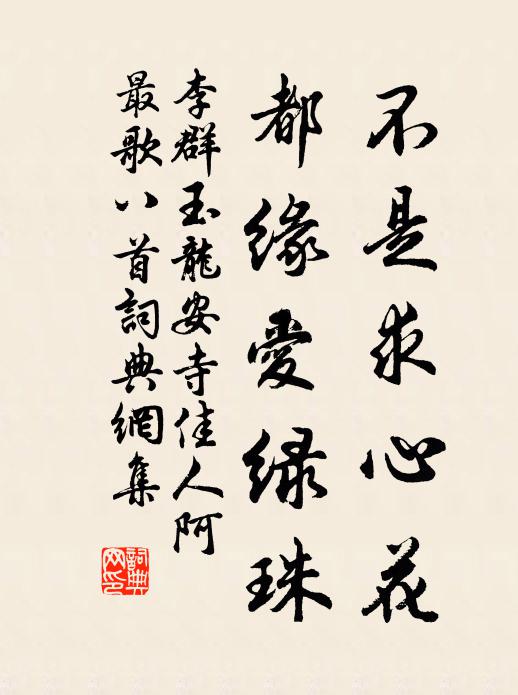 不是求心花
都緣愛綠珠
李群玉龍安寺佳人阿
最歌八首詞典網集
詞典網印